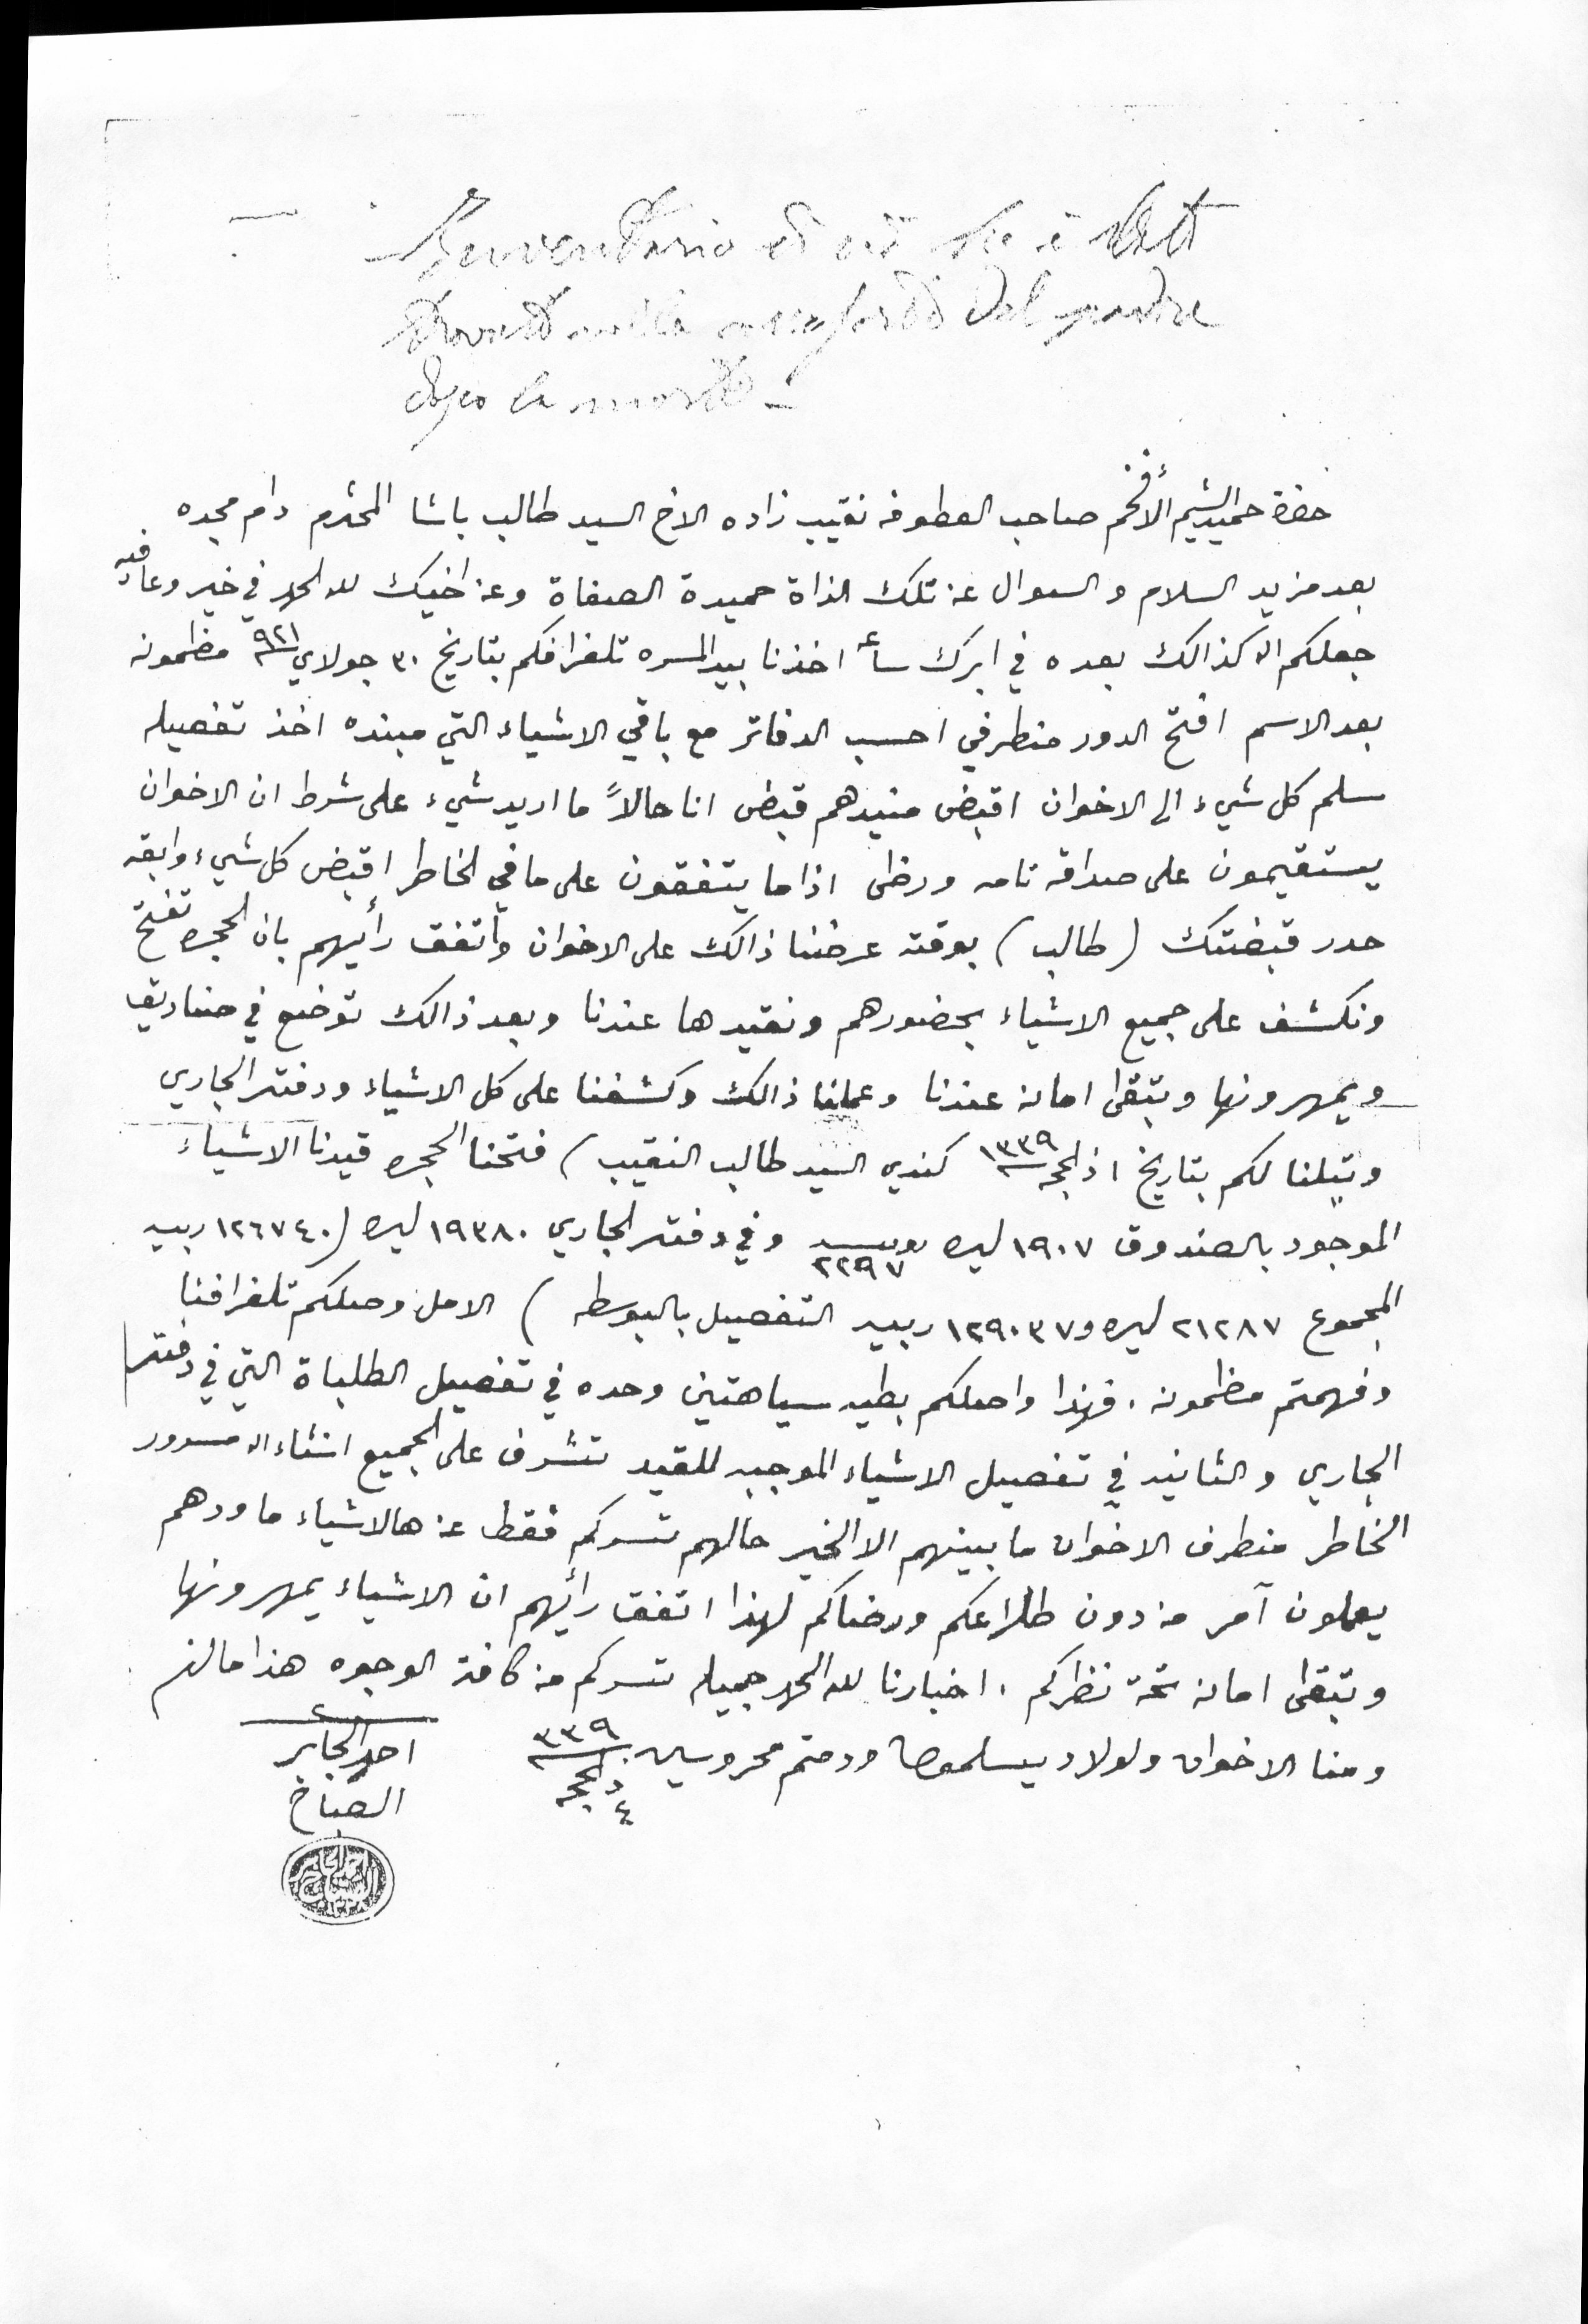 Inventario di ciò che è stato
trovato nella cassaforte del padre
dopo la morte -
حضرة حميد الشيم الأفخم صاحب العطوفه نقيب زاده الاخ السيد طالب باشا المحترم دام مجده
بعد مزيد السلام والسوال عن تلك الذاة حميدة الصفاة وعن اخيك لله الحمد في خير وعافيه
جعلكم الله كذالك بعده في ابرك ساع اخذنا بيد المسره تلغرافكم بتاريخ ٣٠ جولاي ٩٢١ مظمونه
بعد الاسم افتح الدور منطرفي احسب الدفاتر مع باقي الاشياء التي مبنده اخذ تفصيله
سلم كل شيء الى الاخوان اقبض منيدهم قبض انا حالاً ما اريد شيء على شرط ان الاخوان
يستقيمون على صداقه تامه ورظى اذا ما يتفقون على ما في الخاطر اقبض كل شيء وابقه
حدر قبضتك (طالب) بوقته عرضنا ذالك على الاخوان وأتفق رأيهم بان الحجره تفتح
ونكشف على جميع الاشياء بحضورهم ونقيدها عندنا وبعد ذالك توضع في صناديق
ويمهرونها وتبقى امانه عندنا وعملنا ذالك وكشفنا على كل الاشياء ودفتر الجاري
وتيلنا لكم بتاريخ ١ ذالحجه ١٣٣٩ كندي السيد طالب النقيب) فتحنا الحجره قيدنا الاشياء
الموجود بالصندوق ١٩٠٧ ليره ٢٢٩٧ وفي دفتر الجاري ١٩٣٨٠ ليره (١٢٦٧٤٠ ربيه
المجموع ٢١٢٨٧ ليره و١٢٩٠٣٧ ربيه التفصيل بالبوسطه) الامل وصلكم تلغرافنا
وفهمتم مظمونه. فهذا واصلكم بطيه سياهتين وحده في تفصيل الطلباة التي في دفتر
الجاري والثانيه في تفصيل الاشياء الموجبه للقيد تشرف على الجميع انشاء الله مسرور
الخاطر منطرف الاخوان ما بينهم الا الخير حالهم تسركم فقط عن هالاشياء ما ودهم
يعملون آمر من دون طلاعكم ورضاكم لهذا اتفق رائيهم ان الاشياء يمهرونها
وتبقى امانه تحة نظركم. اخبارنا لله الحمد جميله تسركم من كافة الوجوه هذا مالزم
ومنا الاخوان ولولاد يسلمون ودمتم محروسين ٤ ذالحجه ٣٣٩
احمد الجابر
الصباح
احمد الجابر الصباح ١٣٣٨